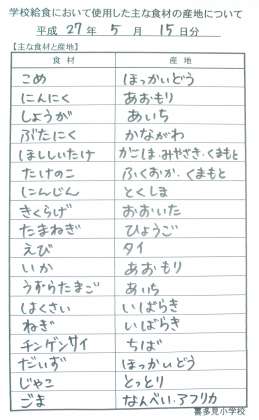 学校給食において使用した主な食材の産地について
平成 27年 5月 15日分
【主な食材と産地】
食材 産地
こめ ほっかいどう
にんにく あおもり
しょうが あいち
ぶたにく かながわ
ほししいたけ かごしま・みやざき・くまもと
たけのこ ふくおか・くまもと
にんじん とくしま
きくらげ おおいた
たまねぎ ひょうご
えび タイ
いか あおもり
うずらたまご あいち
はくさい いばらき
ねぎ いばらき
チンゲンサイ ちば
だいず ほっかいどう
じゃこ とっとり
ごま なんべい・アフリカ
喜多見小学校